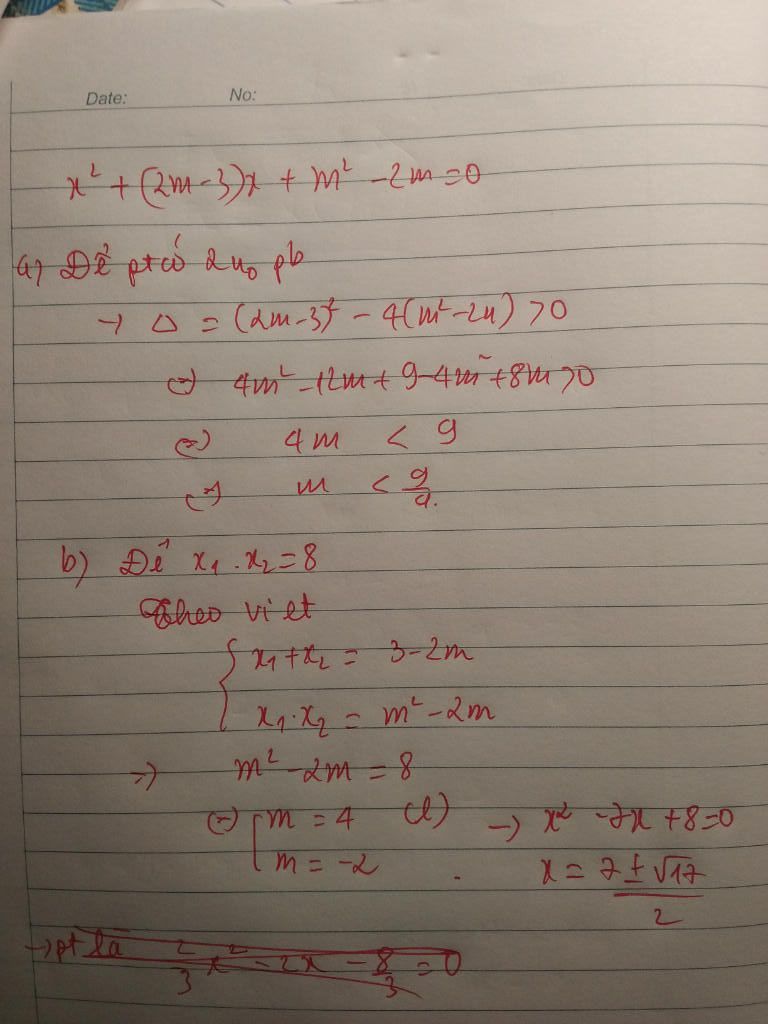 Date: No:
x² + (2m-3)x + m² - 2m = 0
a) Để pt có 2 no pb
→ Δ = (2m-3)² - 4(m²-2m) > 0
(=) 4m² - 12m + 9 - 4m² + 8m > 0
(=) 4m < 9
(=) m < 9/4.
b) Để x₁ . x₂ = 8
Theo vi et
{ x₁ + x₂ = 3 - 2m
x₁ . x₂ = m² - 2m
=> m² - 2m = 8
(=) [ m = 4 (l) → x² - 7x + 8 = 0
m = -2 . x = (7 ± √17)/2
→ pt là 2/3 x² - 2x - 8/3 = 0